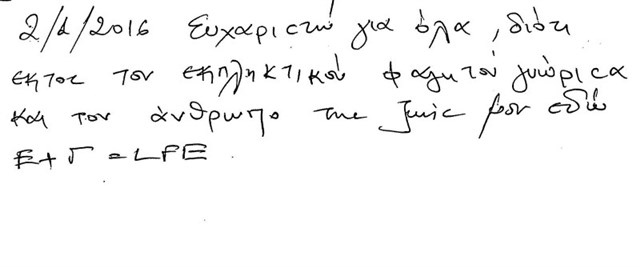 2/1/2016 Ευχαριστώ για όλα, διότι
εκτος του εκπληκτικού φαγητού γνώρισα
και τον άνθρωπο της ζωής μου εδώ
Ε+Γ=LFE